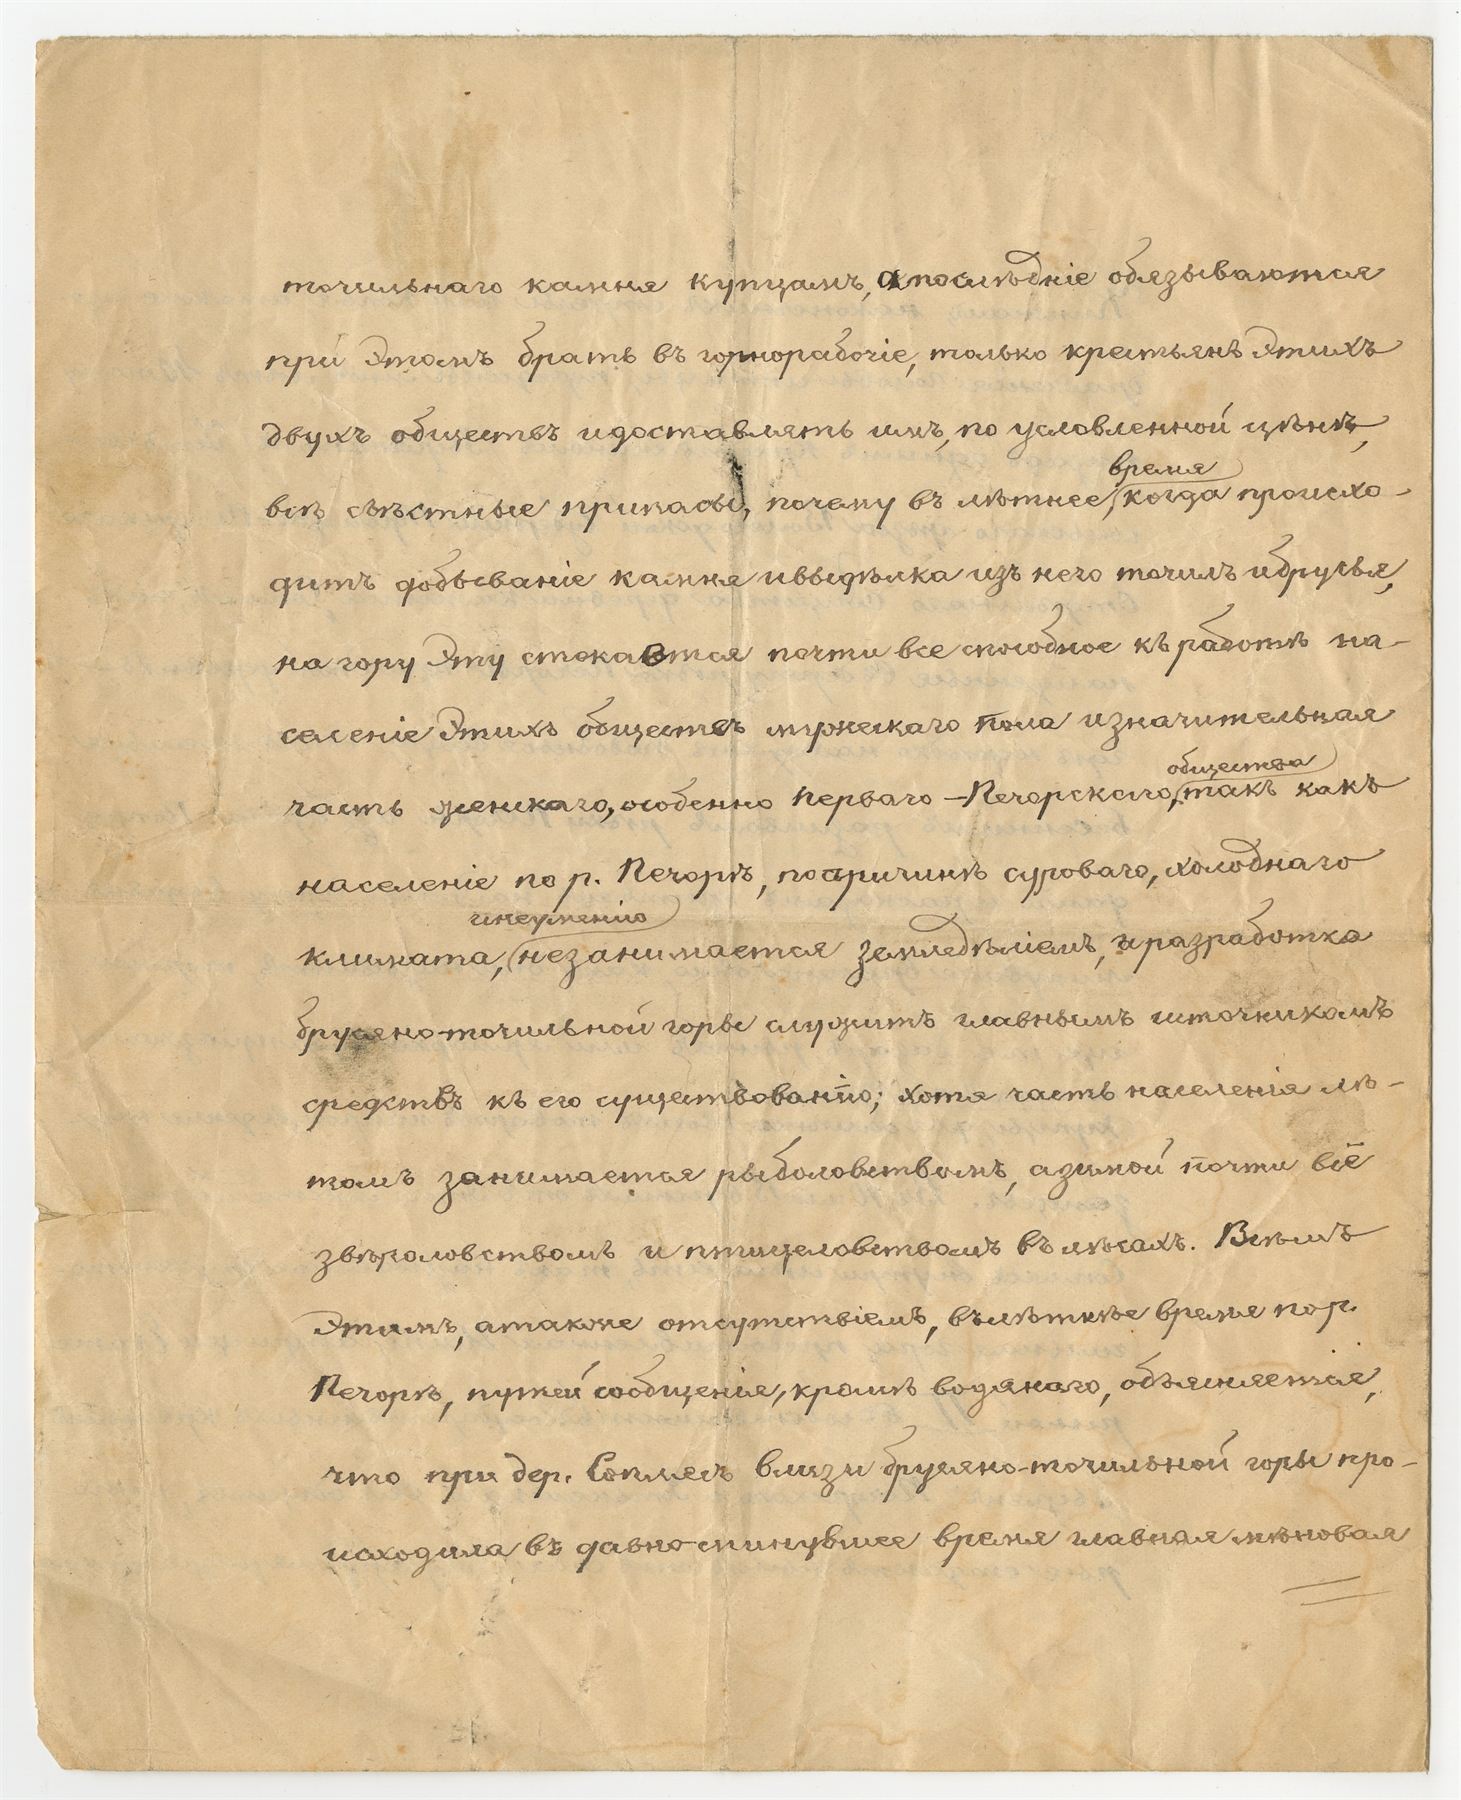 точильнаго камня купцамъ, а послѣдніе обязываются
при этомъ брать въ горнорабочіе, только крестьянъ этихъ
двухъ обществъ и доставлять имъ, по условленной цѣнѣ,
время
всѣ съѣстные припасы, почему въ лѣтнее, когда происхо-
дитъ добываніе камня и выдѣлка изъ него точилъ и брусья,
на гору эту стекается почти все способное къ работѣ на-
селеніе этихъ обществъ мужескаго пола и значительная
общества
часть женскаго, особенно Перваго-Печорскаго, такъ какъ
населеніе по р. Печорѣ, по причинѣ суроваго, холоднаго
и неумѣнію
климата, не занимается земледѣліемъ, и разработка
брусяно-точильной горы служитъ главнымъ источникомъ
средствъ къ его существованію; хотя часть населенія лѣ-
томъ занимается рыболовствомъ, а зимой почти всѣ
звѣроловствомъ и птицеловствомъ въ лѣсахъ. Всѣмъ
этимъ, а также отсутствіемъ, въ лѣтнѣе время по р.
Печорѣ, путей сообщенія, кромѣ водянаго, объясняется,
что при дер. Соплесъ вблизи брусяно-точильной горы про-
исходила въ давно-минувшее время главная мѣновая